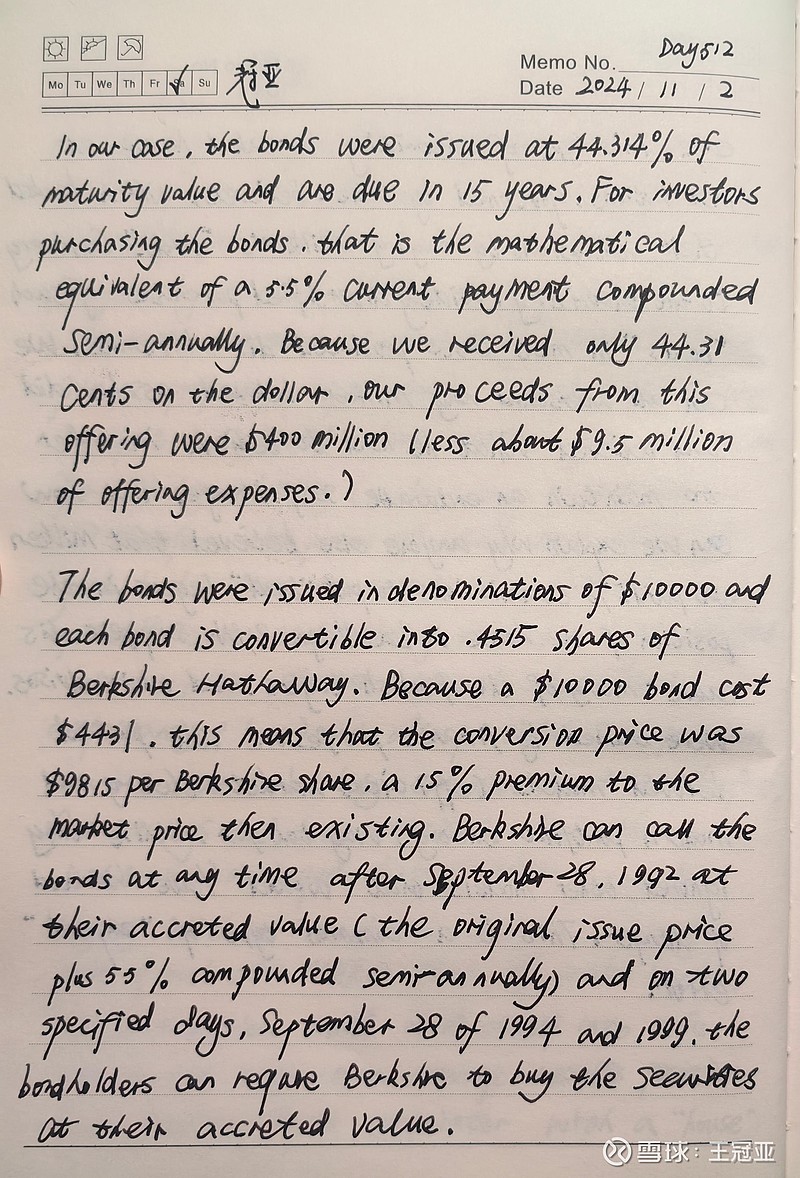 Day512
Memo No.
Mo Tu We Th Fr Sa Su 冠亚
Date 2024 / 11 / 2
In our case, the bonds were issued at 44.314% of
maturity value and are due in 15 years. For investors
purchasing the bonds, that is the mathematical
equivalent of a 5.5% current payment compounded
semi-annually. Because we received only 44.31
Cents on the dollar, our proceeds from this
offering were $400 million (less about $9.5 million
of offering expenses.)
The bonds were issued in denominations of $10000 and
each bond is convertible into .4515 shares of
Berkshire Hathaway. Because a $10000 bond cost
$4431, this means that the conversion price was
$9815 per Berkshire share, a 15% premium to the
market price then existing. Berkshire can call the
bonds at any time after September 28, 1992 at
their accreted value (the original issue price
plus 55% compounded semi-annually) and on two
specified days, September 28 of 1994 and 1999, the
bondholders can require Berkshire to buy the securities
at their accreted value.
雪球：王冠亚